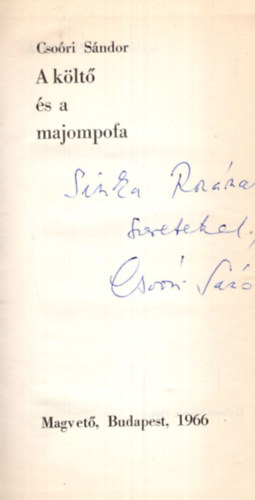 Csoóri Sándor
A költő
és a
majompofa
Szeretettel,
Csoóri Sán
Magvető, Budapest, 1966